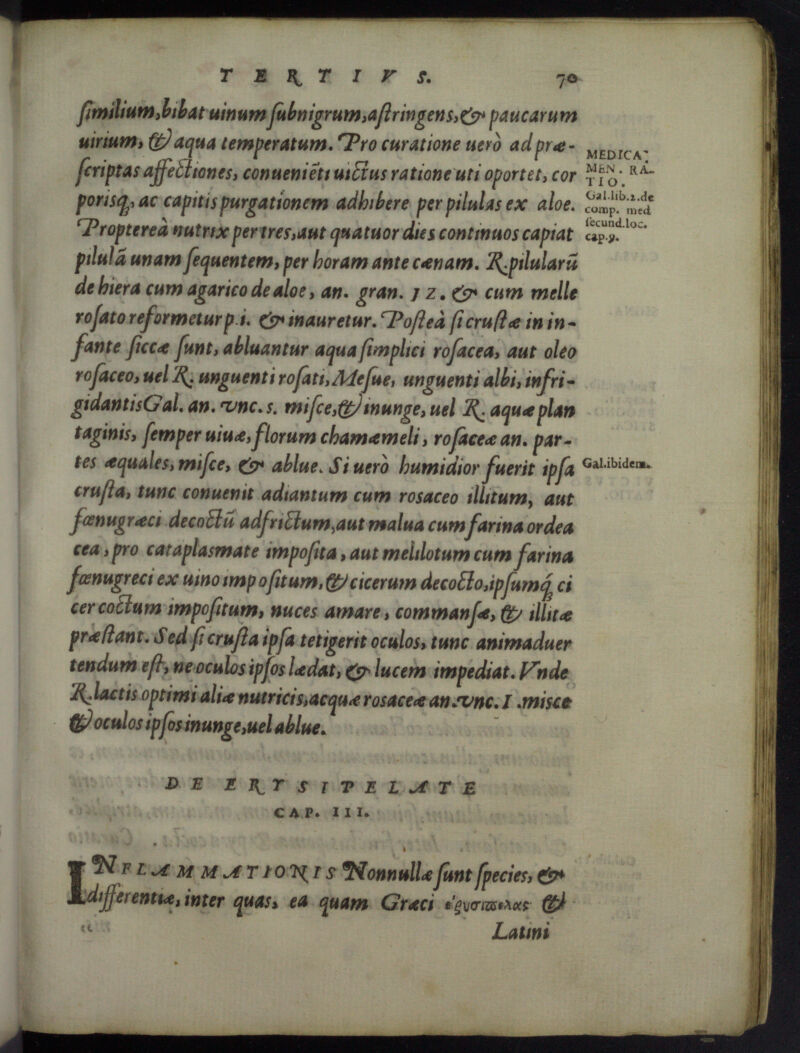 TERTIVS. 70
ſimilium, bibat uinum ſubnigrum, aſtringens, & paucarum
uirium, & aqua temperatum. Pro curatione uerò ad præ-
ſcriptas affectiones, conueniẽti uictus ratione uti oportet, cor
porisq́;, ac capitis purgationem adhibere per pilulas ex aloe.
Propterea nutrix per tres, aut quatuor dies continuos capiat
pilulã unam ſequentem, per horam ante cænam. ℞. pilularũ
de hiera cum agarico de aloe, an. gran. 12. & cum melle
roſato reformetur p. i. & inauretur. Poſtea ſi cruſtæ in in-
fante ſiccæ ſunt, abluantur aqua ſimplici roſacea, aut oleo
roſaceo, uel ℞. unguenti roſati, Meſue, unguenti albi, infri-
gidantis Gal. an. vnc. s. miſce, & inunge, uel ℞. aquæ plan
taginis, ſemper uiuæ, florum chamæmeli, roſaceæ an. par-
tes æquales, miſce, & ablue. Si uerò humidior fuerit ipſa
cruſta, tunc conuenit adiantum cum rosaceo illitum, aut
fœnugræci decoctũ adfrictum, aut malua cum farina ordea
cea, pro cataplasmate impoſita, aut melilotum cum farina
fœnugreci ex uino impoſitum, & cicerum decocto, ipſumq́; ci
cer coctum impoſitum, nuces amare, commanſæ, & illitæ
præſtant. Sed ſi cruſta ipſa tetigerit oculos, tunc animaduer
tendum eſt, ne oculos ipſos lædat, & lucem impediat. Vnde
℞. lactis optimi aliæ nutricis, acquæ rosaceæ an. vnc. 1. misce
& oculos ipſos inunge, uel ablue.
MEDICA:
MEN. RA-
TIO.
Gal. lib. 2. de
comp. med
ſecund. loc.
cap. 9.
Gal. ibidem.
DE ERYSIPELATE
CAP. III.
INFLAMMATIONIS Nonnullæ ſunt ſpecies, &
differentiæ, inter quas, ea quam Græci ἐρυσίπελας &
Latini